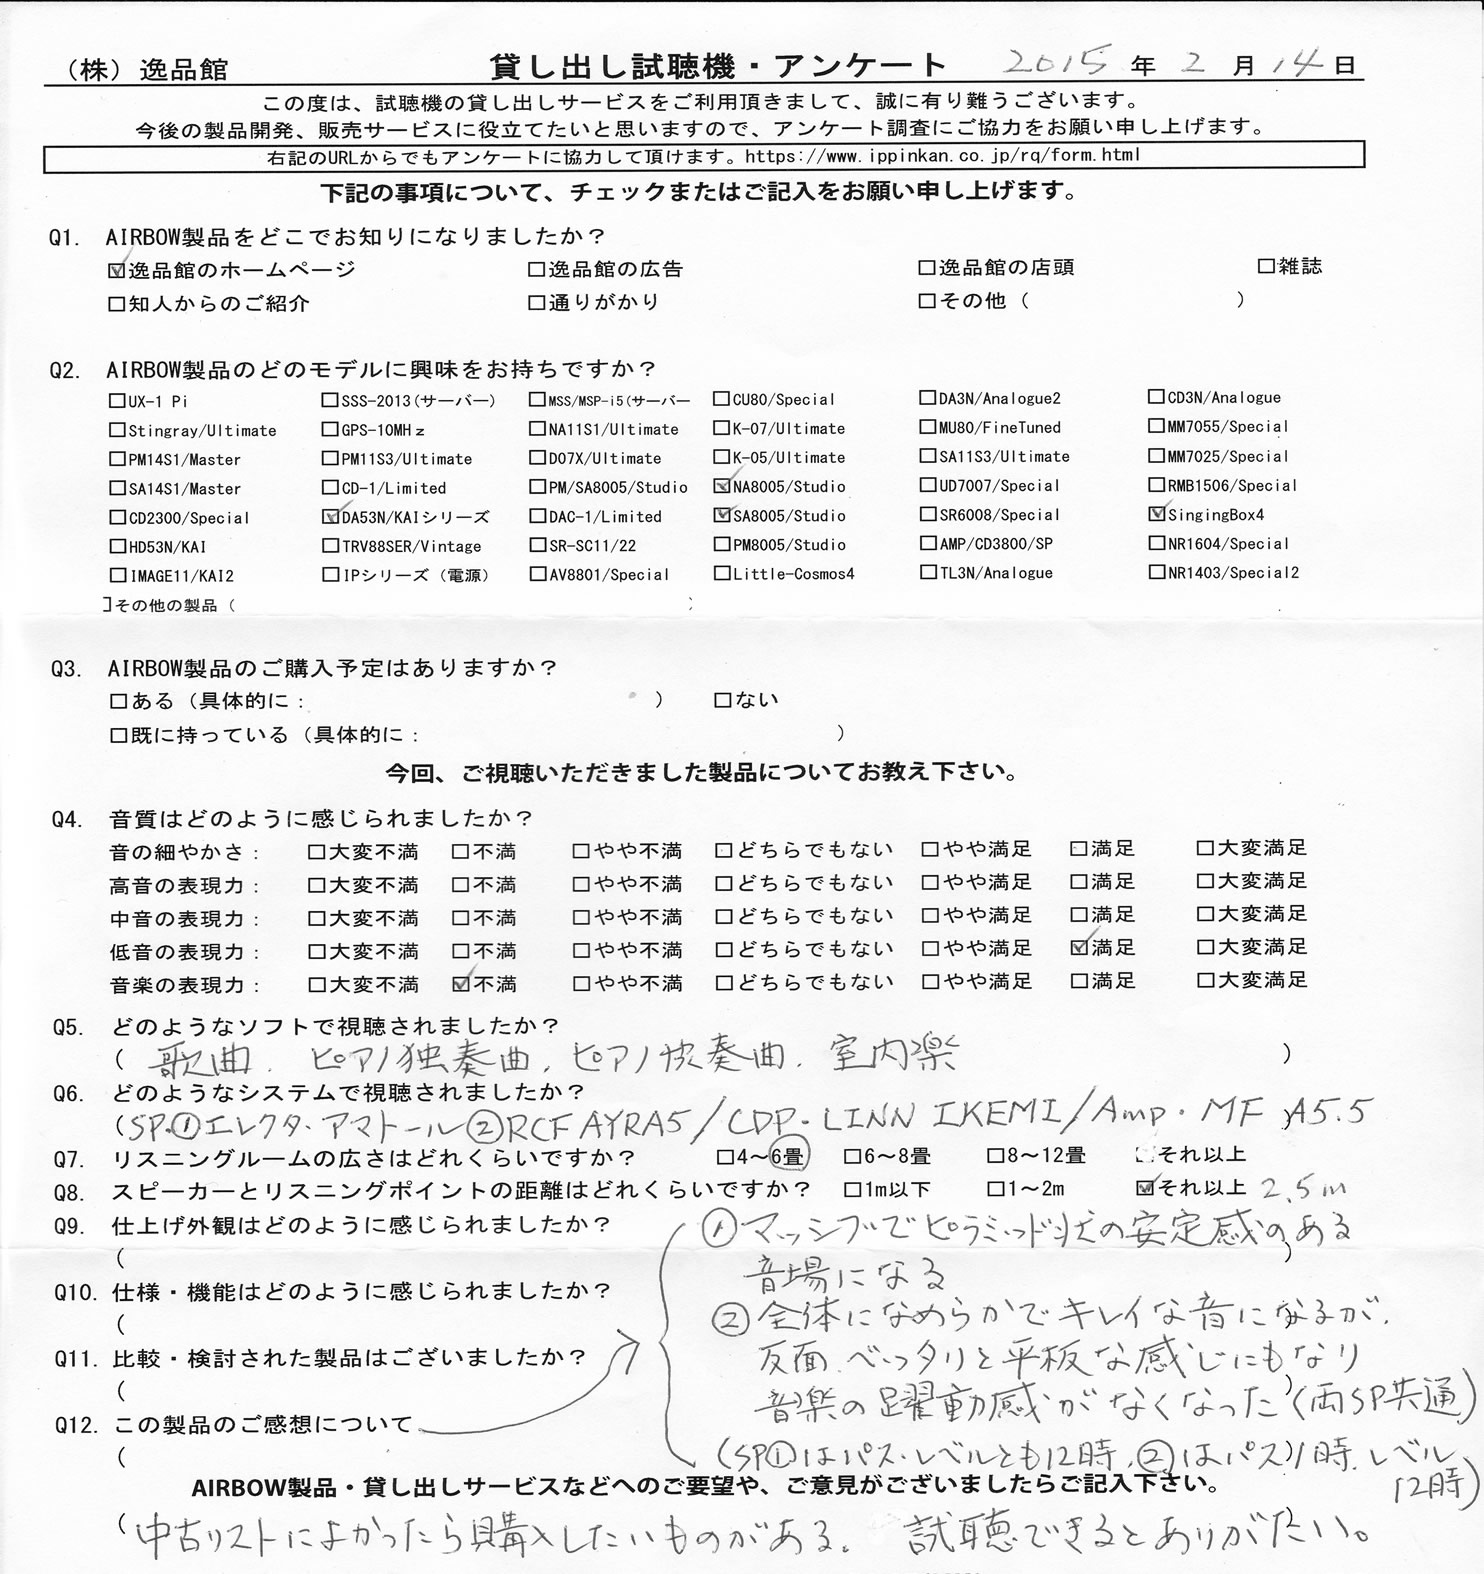 (株) 逸品館 貸し出し試聴機・アンケート 2015 年 2 月 14 日
この度は、試聴機の貸し出しサービスをご利用頂きまして、誠に有り難うございます。
今後の製品開発、販売サービスに役立てたいと思いますので、アンケート調査にご協力をお願い申し上げます。
右記のURLからでもアンケートに協力して頂けます。https://www.ippinkan.co.jp/rq/form.html
下記の事項について、チェックまたはご記入をお願い申し上げます。
Q1. AIRBOW製品をどこでお知りになりましたか？
☑逸品館のホームページ □逸品館の広告 □逸品館の店頭 □雑誌
□知人からのご紹介 □通りがかり □その他 ( )
Q2. AIRBOW製品のどのモデルに興味をお持ちですか？
□UX-1 Pi □SSS-2013(サーバー) □MSS/MSP-i5(サーバー □CU80/Special □DA3N/Analogue2 □CD3N/Analogue
□Stingray/Ultimate □GPS-10MHz □NA11S1/Ultimate □K-07/Ultimate □MU80/FineTuned □MM7055/Special
□PM14S1/Master □PM11S3/Ultimate □D07X/Ultimate □K-05/Ultimate □SA11S3/Ultimate □MM7025/Special
□SA14S1/Master □CD-1/Limited □PM/SA8005/Studio ☑NA8005/Studio □UD7007/Special □RMB1506/Special
□CD2300/Special ☑DA53N/KAIシリーズ □DAC-1/Limited ☑SA8005/Studio □SR6008/Special ☑SingingBox4
□HD53N/KAI □TRV88SER/Vintage □SR-SC11/22 □PM8005/Studio □AMP/CD3800/SP □NR1604/Special
□IMAGE11/KAI2 □IPシリーズ (電源) □AV8801/Special □Little-Cosmos4 □TL3N/Analogue □NR1403/Special2
□その他の製品 ( )
Q3. AIRBOW製品のご購入予定はありますか？
□ある (具体的に： ) □ない
□既に持っている (具体的に： )
今回、ご視聴いただきました製品についてお教え下さい。
Q4. 音質はどのように感じられましたか？
音の細やかさ： □大変不満 □不満 □やや不満 □どちらでもない □やや満足 □満足 □大変満足
高音の表現力： □大変不満 □不満 □やや不満 □どちらでもない □やや満足 □満足 □大変満足
中音の表現力： □大変不満 □不満 □やや不満 □どちらでもない □やや満足 □満足 □大変満足
低音の表現力： □大変不満 □不満 □やや不満 □どちらでもない □やや満足 ☑満足 □大変満足
音楽の表現力： □大変不満 ☑不満 □やや不満 □どちらでもない □やや満足 □満足 □大変満足
Q5. どのようなソフトで視聴されましたか？
( 歌曲. ピアノ独奏曲, ピアノ協奏曲. 室内楽 )
Q6. どのようなシステムで視聴されましたか？
(SP.①エレクタ・アマトール②RCF AYRA5/CDP・LINN IKEMI/Amp・MF A5.5 )
Q7. リスニングルームの広さはどれくらいですか？ □4～6畳 □6～8畳 □8～12畳 □それ以上
Q8. スピーカーとリスニングポイントの距離はどれくらいですか？ □1m以下 □1～2m ☑それ以上 2.5m
Q9. 仕上げ外観はどのように感じられましたか？
( )
Q10. 仕様・機能はどのように感じられましたか？
(
Q11. 比較・検討された製品はございましたか？
( )
Q12. この製品のご感想について
(
①マッシブでピラミッド状の安定感のある
音場になる
②全体になめらかでキレイな音になるが、
反面、ベッタリと平板な感じにもなり
音楽の躍動感がなくなった(両SP共通)
(SP①はパス・レベルとも12時、②はパス11時. レベル
12時)
AIRBOW製品・貸し出しサービスなどへのご要望や、ご意見がございましたらご記入下さい。
( 中古リストによかったら購入したいものがある。 試聴できるとありがたい。 )